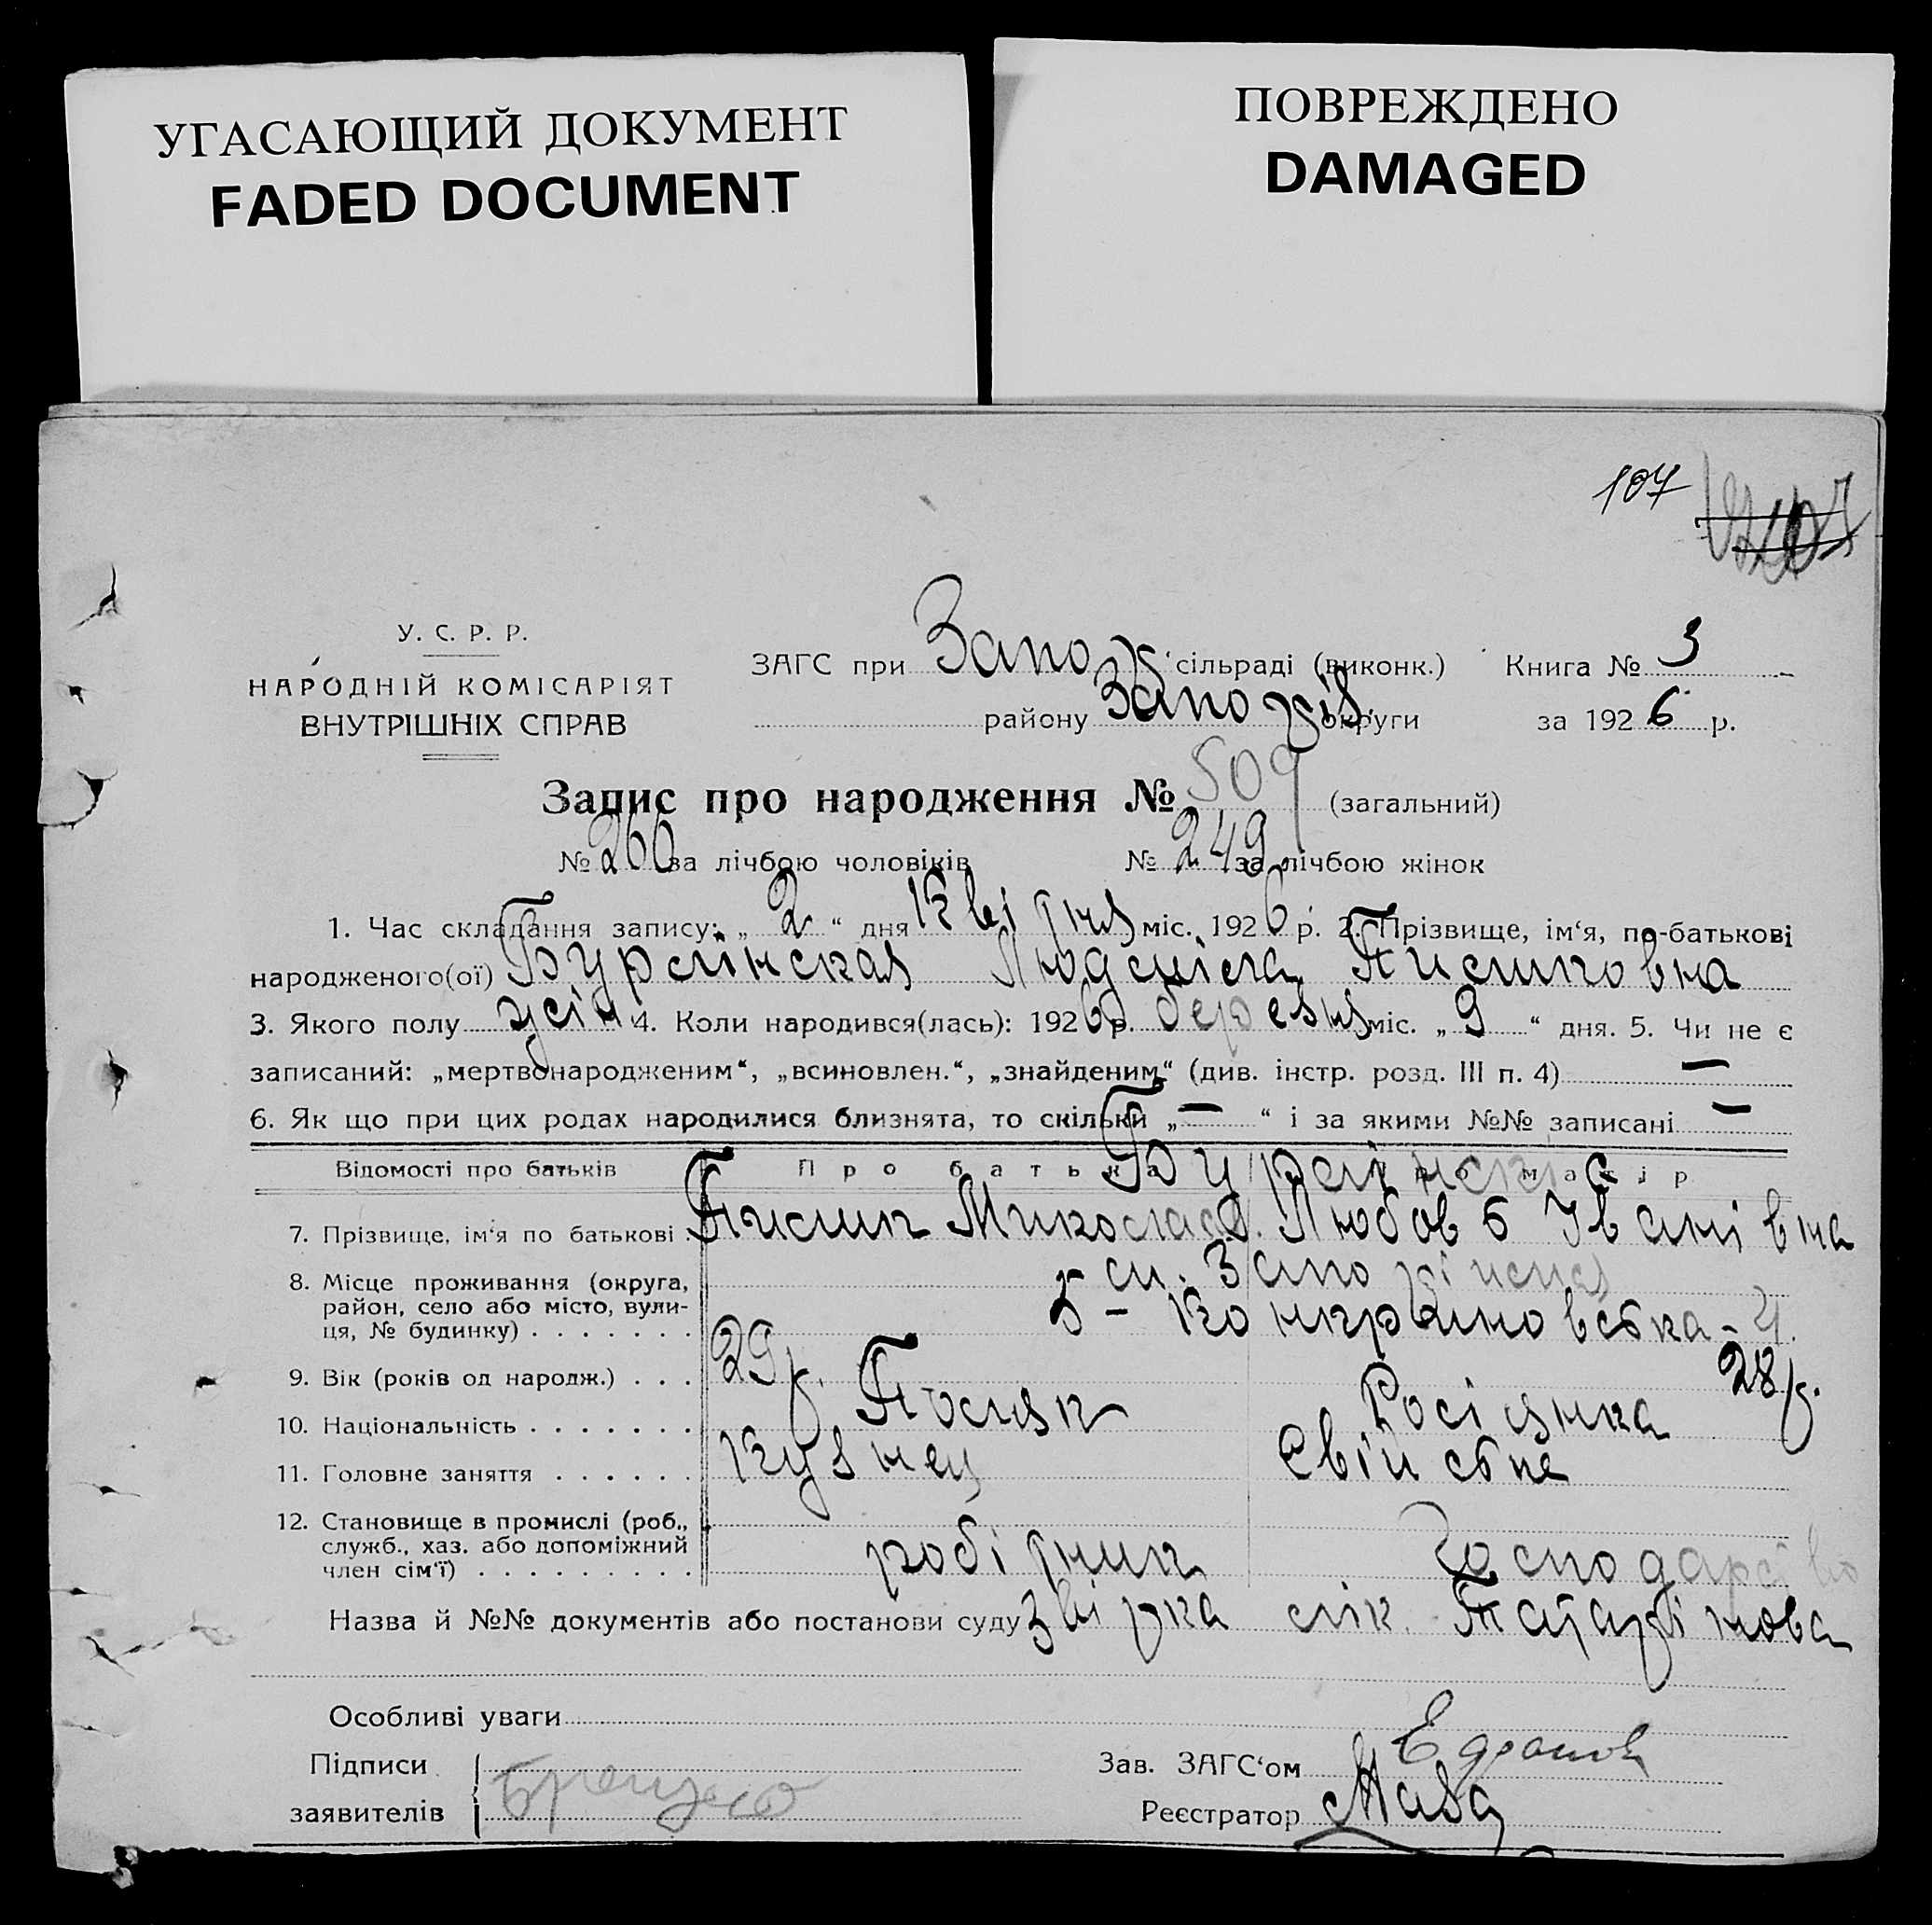 УГАСАЮЩИЙ ДОКУМЕНТ
FADED DOCUMENT
ПОВРЕЖДЕНО
DAMAGED
107
У. С. Р. Р.
НАРОДНІЙ КОМІСАРІЯТ
ВНУТРІШНІХ СПРАВ
ЗАГС при Запоріж. сільраді (виконк.) Книга № 3
району Запоріж. округи за 1926 р.
Запис про народження № 509 (загальний)
№ 260 за лічбою чоловіків № 249 за лічбою жінок
1. Час складання запису: „ 2 “ дня квітня міс. 1926 р. 2. Прізвище, ім‘я, по-батькові
народженого(ої) Бурлінская Людміла
3. Якого полу жін. 4. Коли народився(лась): 1926 р. березня міс. „ 9 “ дня. 5. Чи не є
записаний: „мертвонародженим“, „всиновлен.“, „знайденим“ (див. інстр. розд. III п. 4) —
6. Як що при цих родах народилися близнята, то скільки „ — “ і за якими №№ записані —
Відомості про батьків Про батька Про матір
Бурлінскіє
7. Прізвище, ім‘я по батькові Микола Любовь Іванівна
8. Місце проживання (округа, район, село або місто, вулиця, № будинку) м. Запоріжжя
29 р. 28 р.
9. Вік (років од народж.)
10. Національність Поляк Росіянка
11. Головне заняття Кузнец Свійське
12. Становище в промислі (роб., служб., хаз. або допоміжний член сім‘ї) робітник господарство
Назва й №№ документів або постанови суду звірка лік. Татарінова
Особливі уваги
Підписи
заявителів
Зав. ЗАГС‘ом
Реєстратор